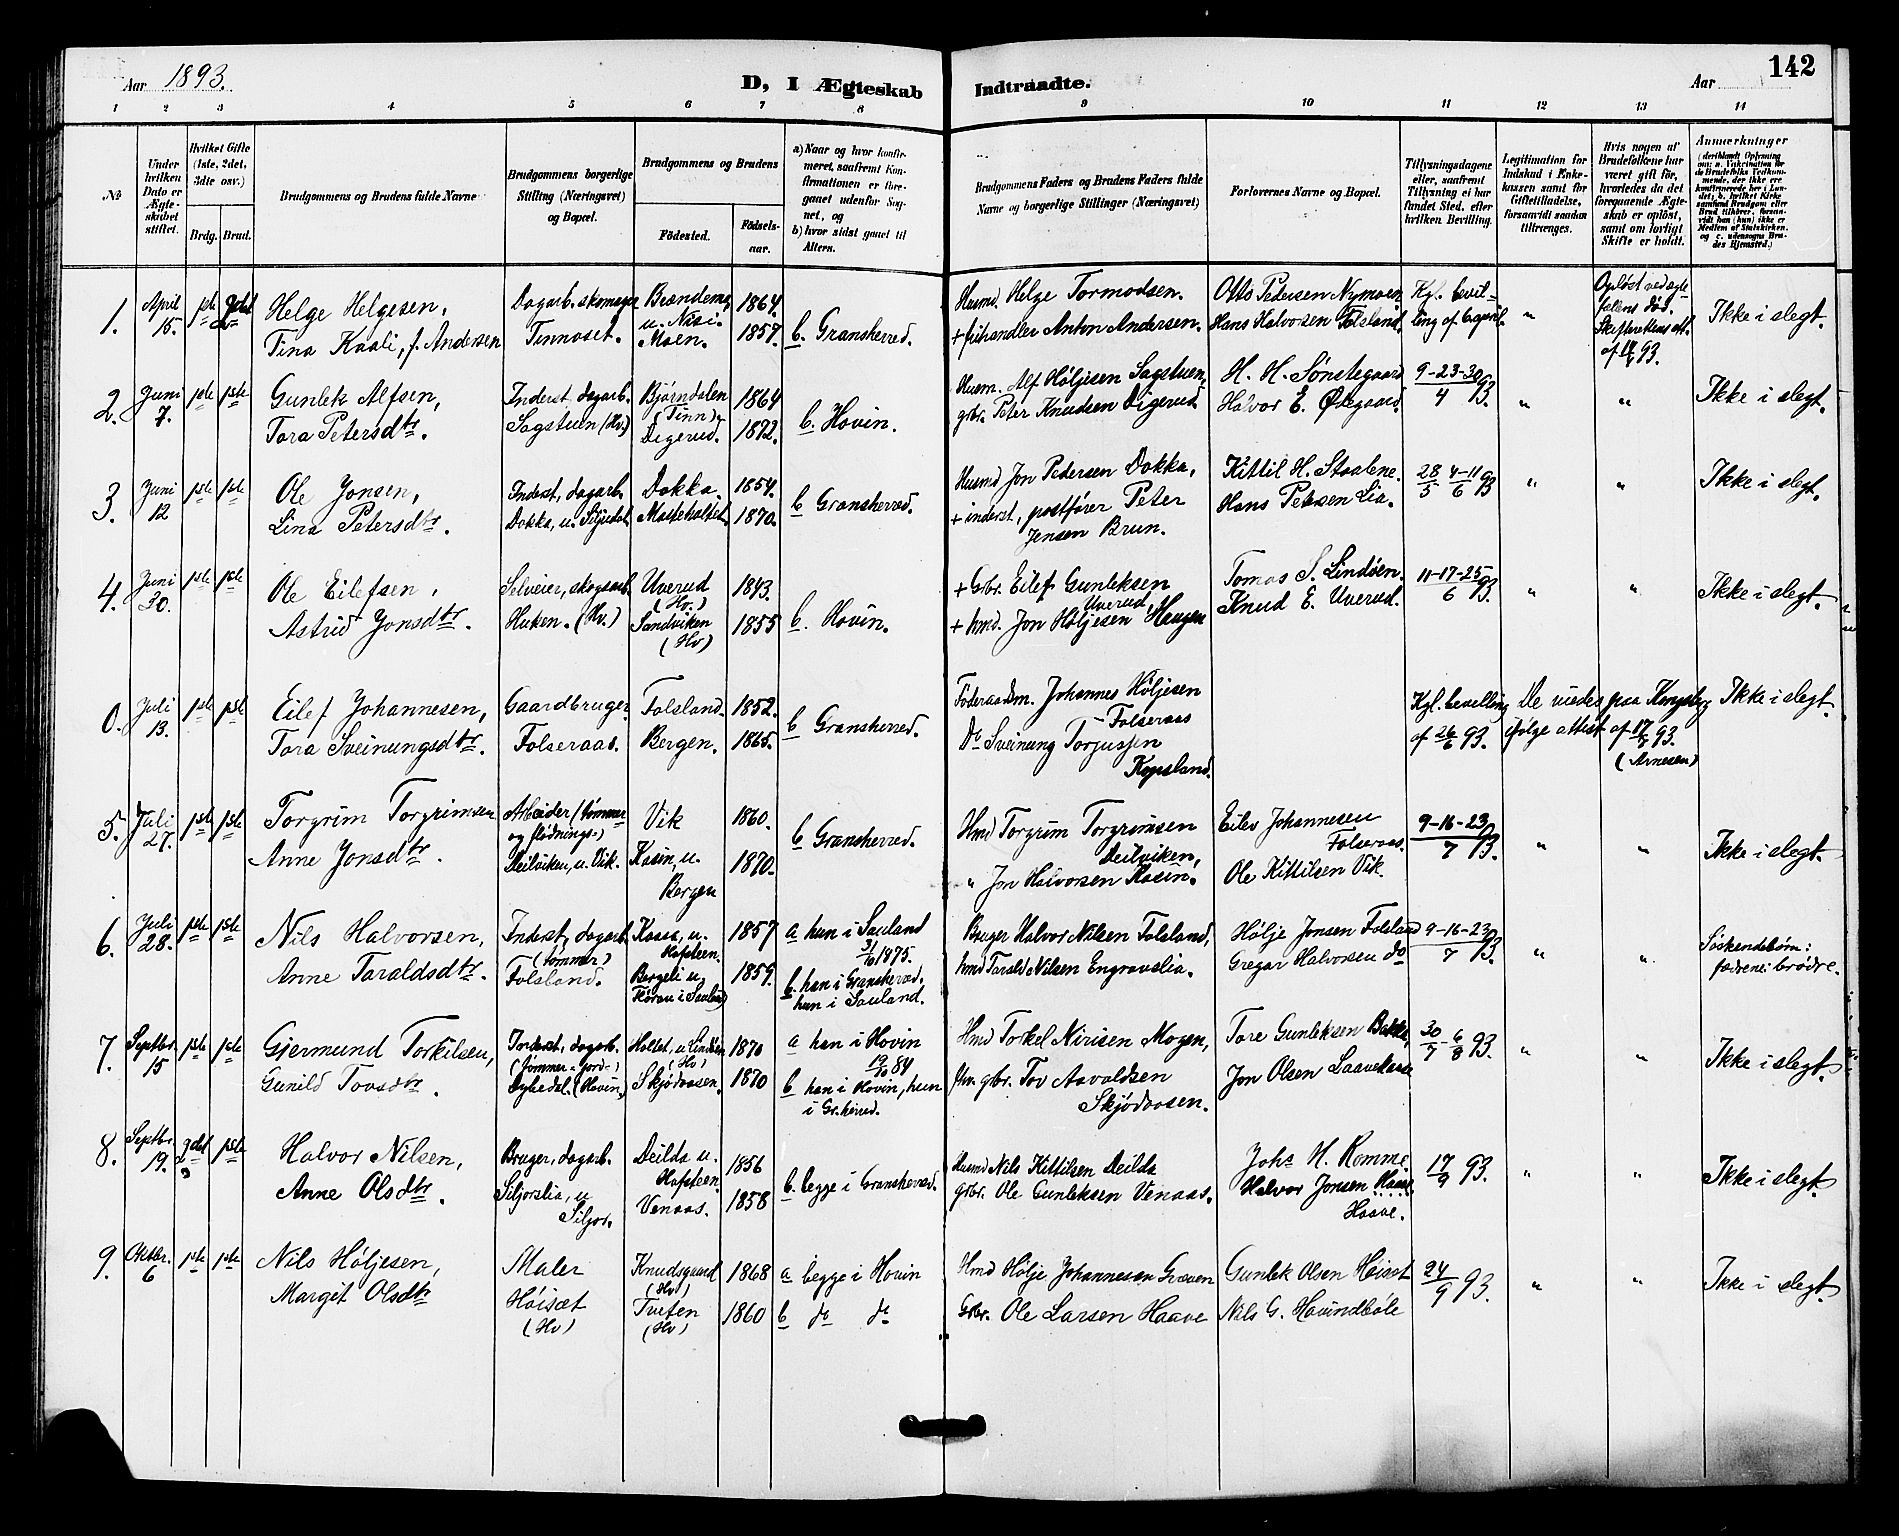 Aar 1893.
D, I Ægteskab
Indtraadte.
Aar
142
1 2 3 4 5 6 7 8 9 10 11 12 13 14
No
Under hvilken Dato er Ægteskabet stiftet.
Hvilket Gifte (1ste, 2det, 3die osv.)
Brdg. Brud.
Brudgommens og Brudens fulde Navne
Brudgommens borgerlige Stilling (Næringsvei) og Bopæl.
Brudgommens og Brudens
Fødested.
Fødselsaar.
a) Naar og hvor konfirmeret, saafremt Konfirmationen er foregaaet udenfor Sognet, og
b) hvor sidst gaaet til Alters.
Brudgommens Faders og Brudens Faders fulde Navne og borgerlige Stillinger (Næringsvei)
Forlovernes Navne og Bopæl.
Tillysningsdagene eller, saafremt Tillysning ei har fundet Sted, efter hvilken Bevilling.
Legitimation for Indskud i Enkekassen samt for Giftetilladelse, forsaavidt saadan tiltrænges.
Hvis nogen af Brudefolkene har været gift før, hvorledes da det foregaaende Ægteskab er opløst, samt om lovligt Skifte er holdt.
Anmærkninger
1. April 15. 1ste 2det
Helge Helgesen,
Tina Kaali, f. Andersen
Dagarb. skomager
Tinnoset.
Brændemo, u. Nisi.
Moen.
1864.
1857.
b. Gransherred.
Husmd. Helge Tormodsen.
+ frihandler Anton Andersen.
Otto Pedersen Nymoen
Hans Halvorsen Folsland.
Kgl. bevilling af 6 april
"
Opløst ved ægtefallens død. Skifterettens att. af 93.
Ikke i slegt.
2. Juni 7. 1ste 1ste
Gunlek Alfsen,
Tora Petersdtr.
Inderst. dagarb.
Sagstuen (Hv.)
Bjørndalen (Tinn)
Digerud.
1864
1872.
b. Hovin.
Husm. Alf Høljesen Sagstuen,
grbr. Peter Knudsen Digerud.
H. H. Sønstegaard
Halvor E. Ødegaard.
9-23-30/4 93.
" "
Ikke i slegt.
3. Juni 12 1ste 1ste
Ole Jonsen,
Lina Petersdtr.
Inderst, dagarb.
Dokka, u. Siljudal.
Dokka.
1854.
1870.
b. Gransherred.
Husmd Jon Pedersen Dokka,
+ inderst, postfører Peter
Jensen Brun.
Kittil H. Staalene.
Hans Petersen Lia.
28/5 4-11/6 93
" "
Ikke i slegt.
4. Juni 30. 1ste 1ste
Ole Eilefsen,
Astrid Jonsdtr.
Selveier, skogsarb.
Haken. (Hv.)
Uverud (Hv.)
Sandviken (Hv)
1843.
1855
b. Hovin.
+ Grbr. Eilef Gunleksen
Uverud,
+ hmd. Jon Høljesen Haugen
Tomas S. Lindøen.
Knud E. Uverud.
11-17-25/6 93.
" "
Ikke i slegt.
0. Juli 13. 1ste 1ste
Eilef Johannesen,
Tora Sveinungsdtr.
Gaardbruger.
Folseraas.
Folsland.
Bergen.
1852.
1865.
b Gransherred.
Føderaadsm. Johannes Høljesen
Folseraas
Do Sveinung Torjussen
Kopsland.
Kgl. bevilling af 26/6 93.
De viedes paa Kongsberg ifølge attest af 17/7 93. (Arnesen)
Ikke i slegt.
5. Juli 27. 1ste 1ste
Torgrim Torgrimsen
Anne Jonsdtr.
Arbeider (tømmer og flødnings-)
Deilviken, u. Vik.
Vik
Kasin, u. Bergen
1860.
1870.
b Gransherred.
Hmd Torgrim Torgrimsen
Deilviken,
" Jon Halvorsen Kasin.
Eilev Johannesen
Folseraas.
Ole Kittilsen Vik.
9-16-23/7 93.
" "
Ikke i slegt.
6. Juli 28. 1ste 1ste
Nils Halvorsen,
Anne Taraldsdtr.
Inderst, dagarb. (tømmer)
Folsland.
Kaasa, u. Hafsteen.
Bergeli u.
1857
1859.
a hun i Sauland
1875.
b. han i Gransherred.
hun i Sauland.
Bruger Halvor Nilsen Folsland,
hmd Tarald Nilsen Engravslia.
Hølje Jonsen Folsland
Gregar Halvorsen do
9-16-23/7 93.
" "
Søskendebørn:
fædrene: brødre.
7. Septbr. 15 1ste 1ste
Gjermund Torkilsen,
Gunild Tovsdtr.
Inderst, dagarb. (Tømmer- jord-)
(Hovin)
Holtet, u. Lindøen (Hv)
Skjødvosen.
1870
1870
a han i Hovin
19/10 84
b han i Hovin, hun
i Gr.herred.
Hmd Torkel Nirisen Mogen,
fhv. grbr. Tov Aavaldsen
Skjødvosen.
Tore Gunleksen Bakka,
Jon Olsen
30/7-6/8 93.
" "
Ikke i slegt.
8. Septbr. 19. 2det 1ste
Halvor Nilsen,
Anne Olsdtr.
Bruger, dagarb.
Siljorslia, u
Siljor.
Deilda u. Hafsteen.
Venaas.
1856
1858
b. begge i Gransherred.
Husmd Nils Kittilsen Deilda
grbr. Ole Gunleksen Venaas.
Johs H. Romme.
Halvor Jonsen
Haave.
17/9 93.
" "
Ikke i slegt.
9. Oktbr. 6 1ste 1ste
Nils Høljesen,
Margit Olsdtr
Maler
Høisæt (Hv)
Knudsgaard (Hv)
Tveten (Hv)
1868
1860
a begge i Hovin
b do do
Hmd Hølje Johannesen Græven
Grbr. Ole Larsen Haave
Gunlek Olsen Høiset
Nils G. Havundbøle
24/9 93.
" "
Ikke i slegt.